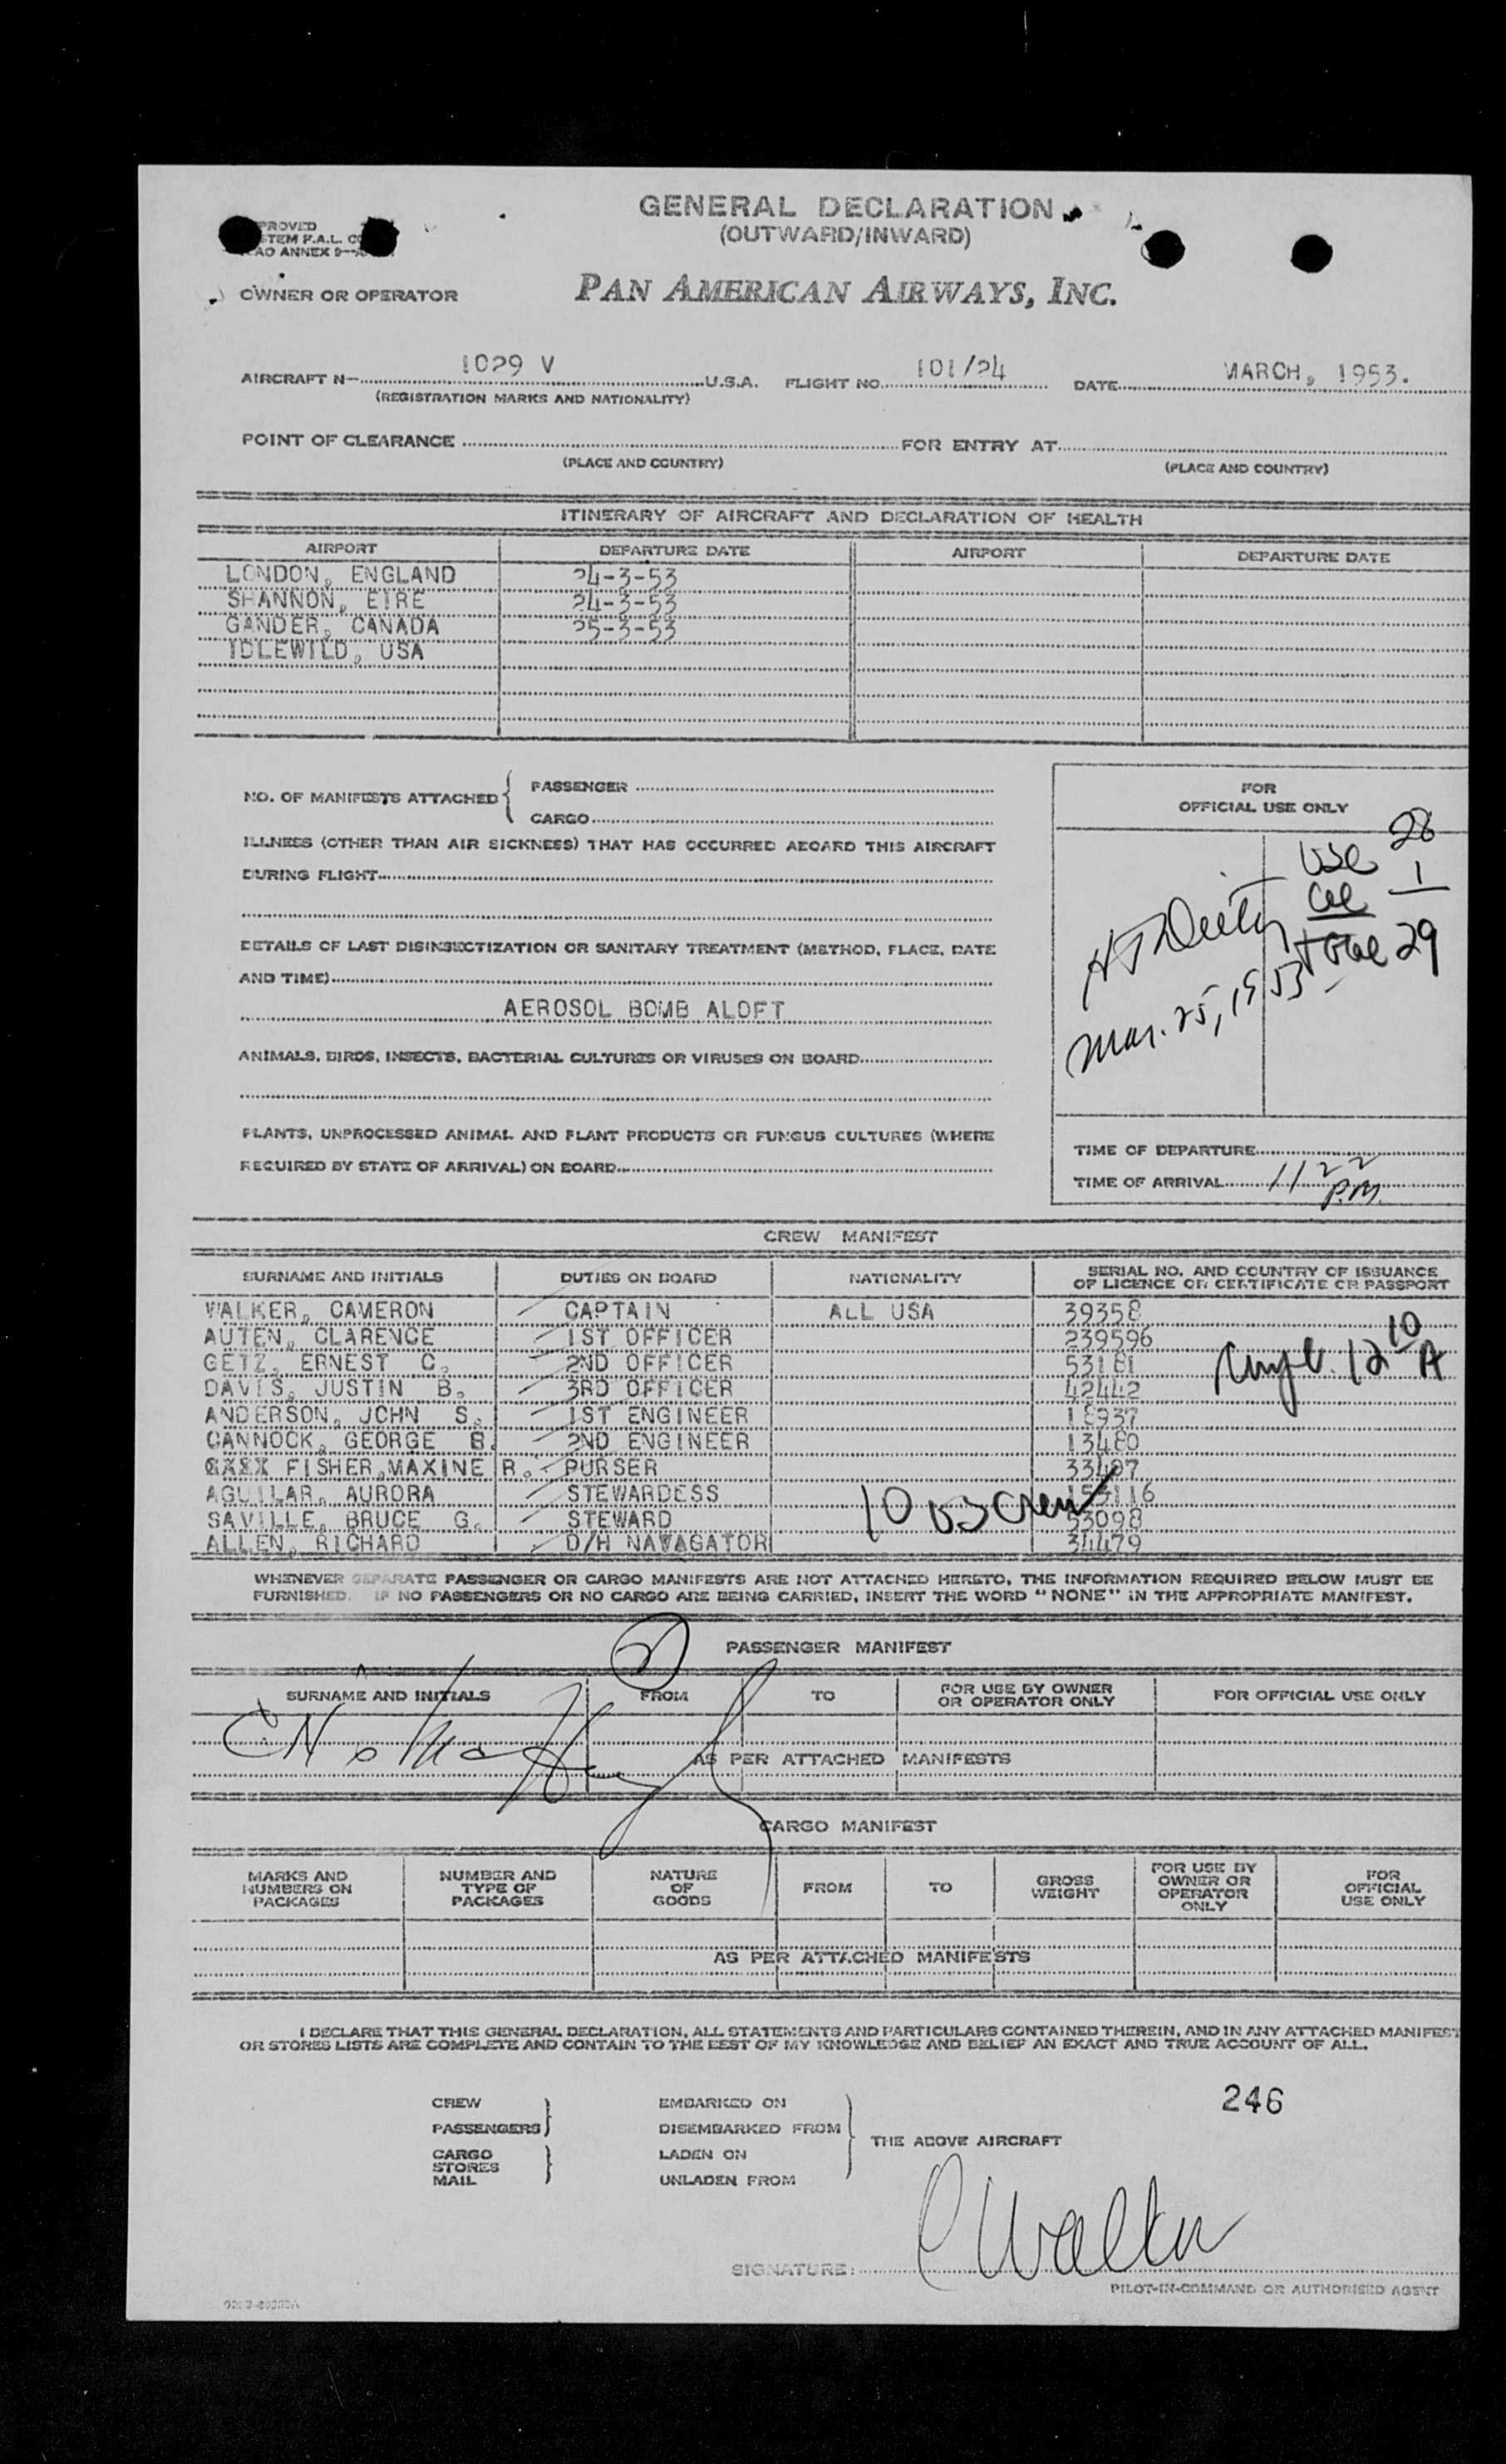 GENERAL DECLARATION
(OUTWARD/INWARD)
PROVED
STEM F.A.L. CO
AO ANNEX 9—
OWNER OR OPERATOR
PAN AMERICAN AIRWAYS, INC.
AIRCRAFT N— 1029 V U.S.A. FLIGHT NO. 101/24 DATE MARCH, 1953.
(REGISTRATION MARKS AND NATIONALITY)
POINT OF CLEARANCE FOR ENTRY AT
(PLACE AND COUNTRY) (PLACE AND COUNTRY)
ITINERARY OF AIRCRAFT AND DECLARATION OF HEALTH
AIRPORT DEPARTURE DATE AIRPORT DEPARTURE DATE
LONDON, ENGLAND 24-3-53
SHANNON, EIRE 24-3-53
GANDER, CANADA 25-3-53
IDLEWILD, USA
NO. OF MANIFESTS ATTACHED { PASSENGER
CARGO
ILLNESS (OTHER THAN AIR SICKNESS) THAT HAS OCCURRED ABOARD THIS AIRCRAFT
DURING FLIGHT
DETAILS OF LAST DISINSECTIZATION OR SANITARY TREATMENT (METHOD, PLACE, DATE
AND TIME)
AEROSOL BOMB ALOFT
ANIMALS, BIRDS, INSECTS, BACTERIAL CULTURES OR VIRUSES ON BOARD
PLANTS, UNPROCESSED ANIMAL AND PLANT PRODUCTS OR FUNGUS CULTURES (WHERE
REQUIRED BY STATE OF ARRIVAL) ON BOARD
FOR
OFFICIAL USE ONLY
USC 28
1
total 29
Mar. 25, 1953
TIME OF DEPARTURE
TIME OF ARRIVAL 11 22
P.M.
CREW MANIFEST
SURNAME AND INITIALS DUTIES ON BOARD NATIONALITY SERIAL NO. AND COUNTRY OF ISSUANCE
OF LICENCE OR CERTIFICATE OR PASSPORT
WALKER, CAMERON CAPTAIN ALL USA 39358
AUTEN, CLARENCE 1ST OFFICER 239596
GETZ, ERNEST C. 2ND OFFICER 53181
DAVIS, JUSTIN B. 3RD OFFICER 42442
ANDERSON, JOHN S. 1ST ENGINEER 18937
CANNOCK, GEORGE B. 2ND ENGINEER 13480
FISHER,MAXINE R. PURSER 33407
AGUILAR, AURORA STEWARDESS 153116
SAVILLE, BRUCE G. STEWARD 53098
ALLEN, RICHARD D/H NAVAGATOR 34479
12 10 A
10 US Crew
WHENEVER SEPARATE PASSENGER OR CARGO MANIFESTS ARE NOT ATTACHED HERETO, THE INFORMATION REQUIRED BELOW MUST BE
FURNISHED. IF NO PASSENGERS OR NO CARGO ARE BEING CARRIED, INSERT THE WORD "NONE" IN THE APPROPRIATE MANIFEST.
PASSENGER MANIFEST
SURNAME AND INITIALS FROM TO FOR USE BY OWNER
OR OPERATOR ONLY FOR OFFICIAL USE ONLY
AS PER ATTACHED MANIFESTS
CARGO MANIFEST
MARKS AND
NUMBERS ON
PACKAGES NUMBER AND
TYPE OF
PACKAGES NATURE
OF
GOODS FROM TO GROSS
WEIGHT FOR USE BY
OWNER OR
OPERATOR
ONLY FOR
OFFICIAL
USE ONLY
AS PER ATTACHED MANIFESTS
I DECLARE THAT THIS GENERAL DECLARATION, ALL STATEMENTS AND PARTICULARS CONTAINED THEREIN, AND IN ANY ATTACHED MANIFEST
OR STORES LISTS ARE COMPLETE AND CONTAIN TO THE BEST OF MY KNOWLEDGE AND BELIEF AN EXACT AND TRUE ACCOUNT OF ALL.
246
CREW EMBARKED ON
PASSENGERS DISEMBARKED FROM
THE ABOVE AIRCRAFT
CARGO LADEN ON
STORES
MAIL UNLADEN FROM
C Walker
SIGNATURE:
PILOT-IN-COMMAND OR AUTHORISED AGENT